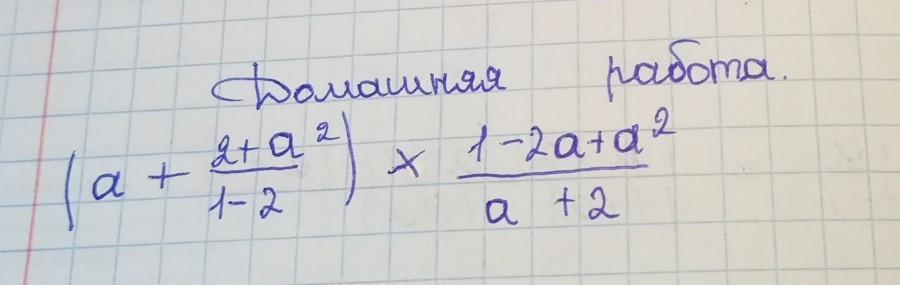 Домашняя работа.
(a + \frac{2+a^2}{1-2}) × \frac{1-2a+a^2}{a+2}